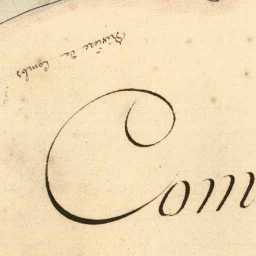 Rivière de Combs
Com